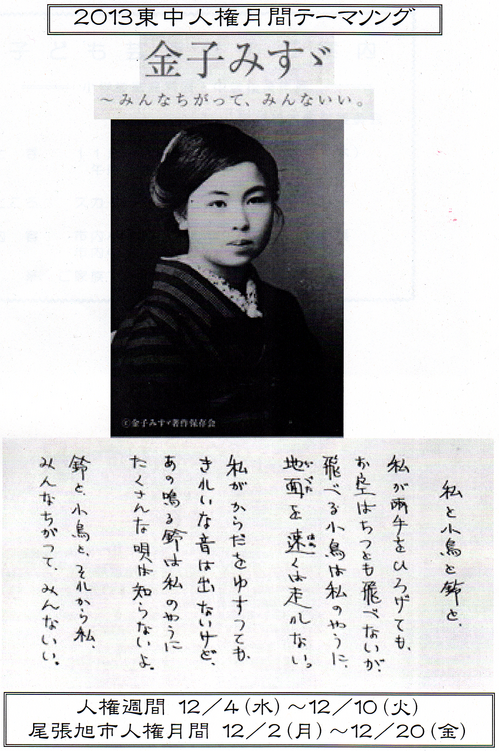 2013東中人権月間テーマソング
金子みすゞ
～みんなちがって、みんないい。
©金子みすゞ著作保存会
私と小鳥と鈴と、
私が両手をひろげても、
お空はちっとも飛べないが、
飛べる小鳥は私のやうに、
地面を速くは走れない。
私がからだをゆすっても、
きれいな音は出ないけど、
あの鳴る鈴は私のやうに
たくさんな唄は知らないよ。
鈴と、小鳥と、それから私、
みんなちがって、みんないい。
人権週間 12／4(水)～12／10(火)
尾張旭市人権月間 12／2(月)～12／20(金)